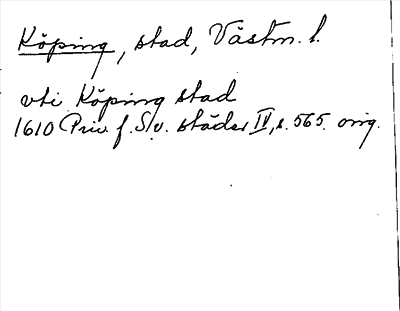 Köping, stad, Västm. l.
vti Köping stad
1610 Priv. f. Sv. städer IV, s. 565. orig.